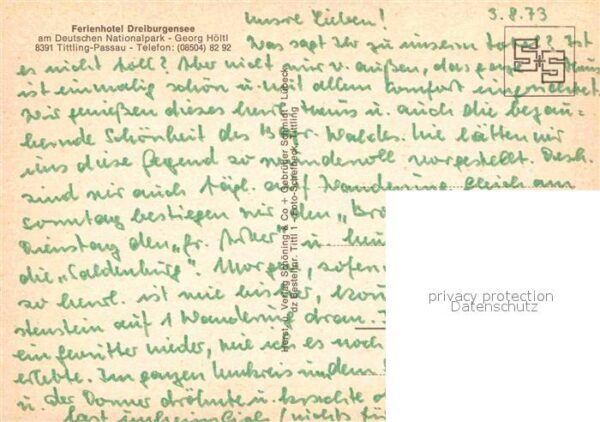 Ferienhotel Dreiburgensee
am Deutschen Nationalpark - Georg Höltl
8391 Tittling-Passau - Telefon: (08504) 82 92
3.8.73
Unsre Lieben!
Was sagt Ihr zu unserm Hotel? Ist
es nicht toll? Aber nicht nur v. außen, das ganze Haus
ist einmalig schön u. mit allem Komfort eingerichtet.
Wir genießen dieses herrl. Haus u. auch die bezau-
bernde Schönheit des Bayr. Waldes. Nie hätten wir
uns diese Gegend so wundervoll vorgestellt. Desh.
sind wir auch tägl. auf Wanderung. Gleich am
Sonntag bestiegen wir den „
Dienstag den „Gr. u.
die „Saldenburg" Morgen, sofern
so herrl. ist wie bisher,
stenstein auf 1 Wanderung dran.
ein Gewitter nieder, wie ich es noch
erlebte. Im ganzen Umkreis
u. der Donner dröhnte u. krachte
fast unheimlich (nichts für
Horst H. Verlag Schöning & Co + Gebrüder Schmidt Lübeck
dz Bestellnr. Tittl 1 Foto-Scheibeck, Tittling
privacy protection
Datenschutz